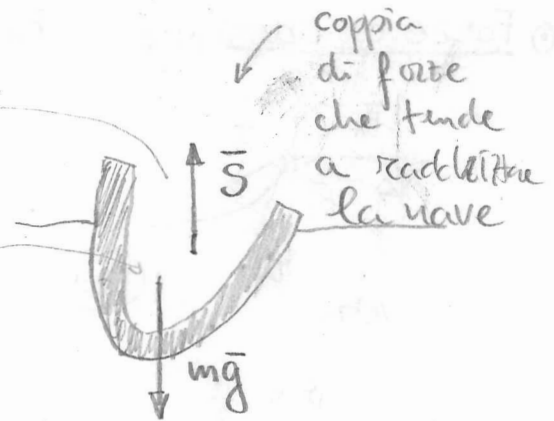 coppia
di forze
che tende
a raddrizzare
la nave
S̅
mg̅